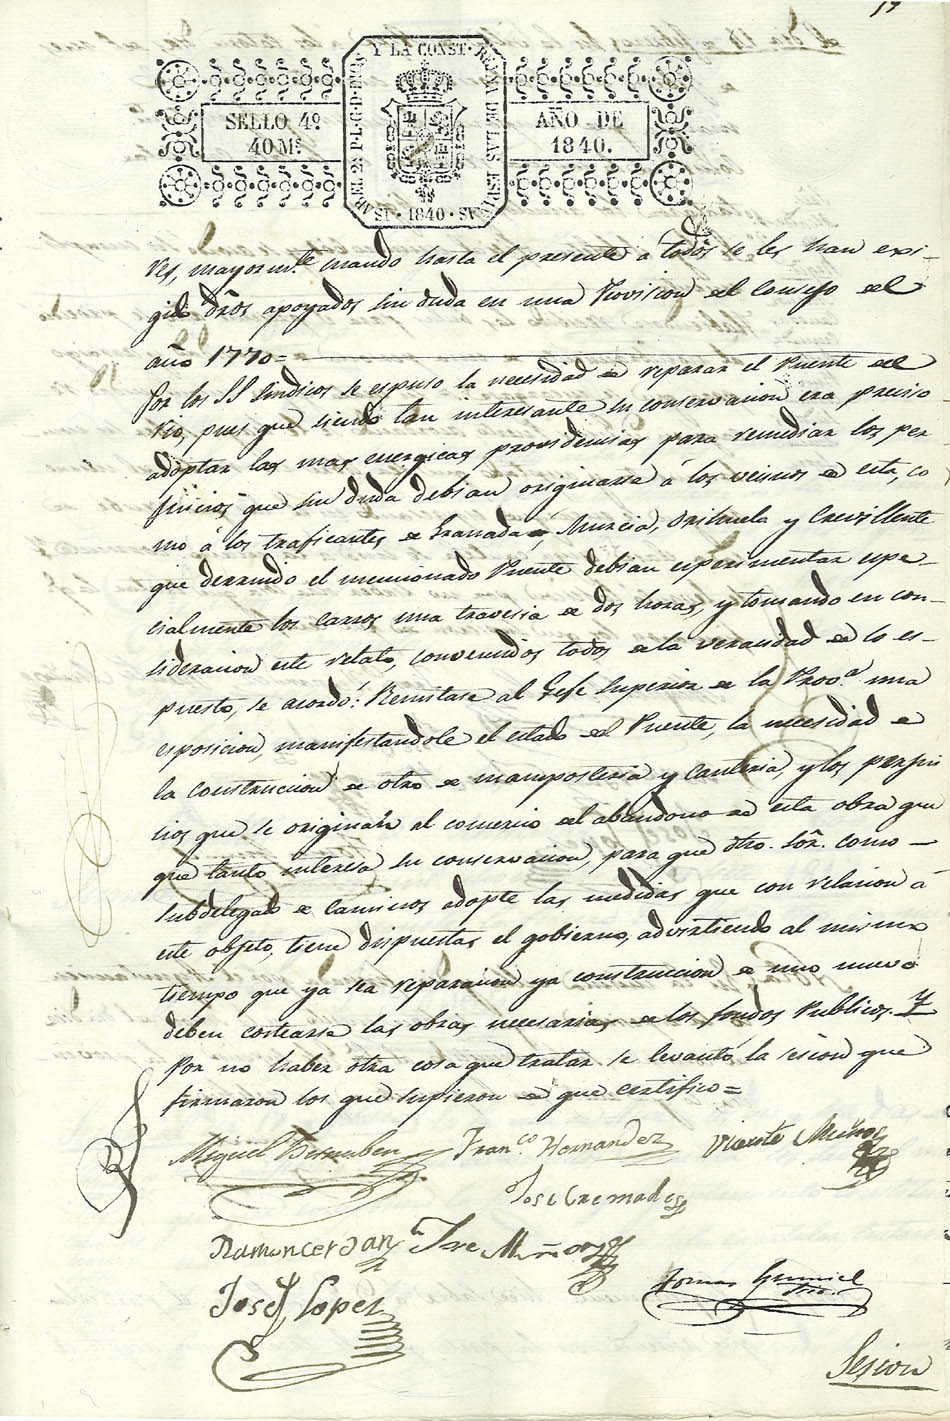 17
Y LA CONST. REYNA DE LAS ESPAÑAS
ISABEL 2ª P. L. G. D. DIOS
1840
SELLO 4º
40 Ms
AÑO DE
1840.
ves, mayormte cuando hasta el presente á todos se les han exi-
gido dros apoyados sin duda en una Provision del Consejo del
año 1770=
Por los SS Sindicos se espuso la necesidad de reparar el Puente del
Rio, pues que siendo tan interesante su conservacion era preciso
adoptar las mas energicas providencias para remediar los per
juicios que sin duda debian originarse á los vecinos de esta, co
mo á los traficantes de Granada, Murcia, Orihuela y Crevillente
que derruido el mencionado Puente debian esperimentar espe-
cialmente los carros una travesia de dos horas, y tomando en con-
sideracion este relato, convenidos todos de la veracidad de lo es-
puesto, se acordó: Remitase al Gefe Superior de la Prova una
esposicion, manifestandole el estado del Puente, la necesidad de
la construccion de otro de mamposteria y canteria, y los perjui
cios que se originan al comercio del abandono de esta obra que
que tanto interesa su conservacion, para que dho. Sor. como
Subdelegado de Caminos adopte las medidas que con relacion á
este objeto, tiene dispuestas el gobierno, advirtiendo al mismo
tiempo que ya sea reparacion ya construccion de uno nuevo
deben costearse las obras necesarias de los fondos Publicos. Y
Por no haber otra cosa que tratar se levantó la sesion que
firmaron los que supieron de que certifico=
Miguel Bernabeu Franco Hernandez Vicente Muñoz
Jose Cremades
Ramon Cerdan Jose Muñoz
Jose Lopez
Tomas Gumiel
Srio.
Sesion